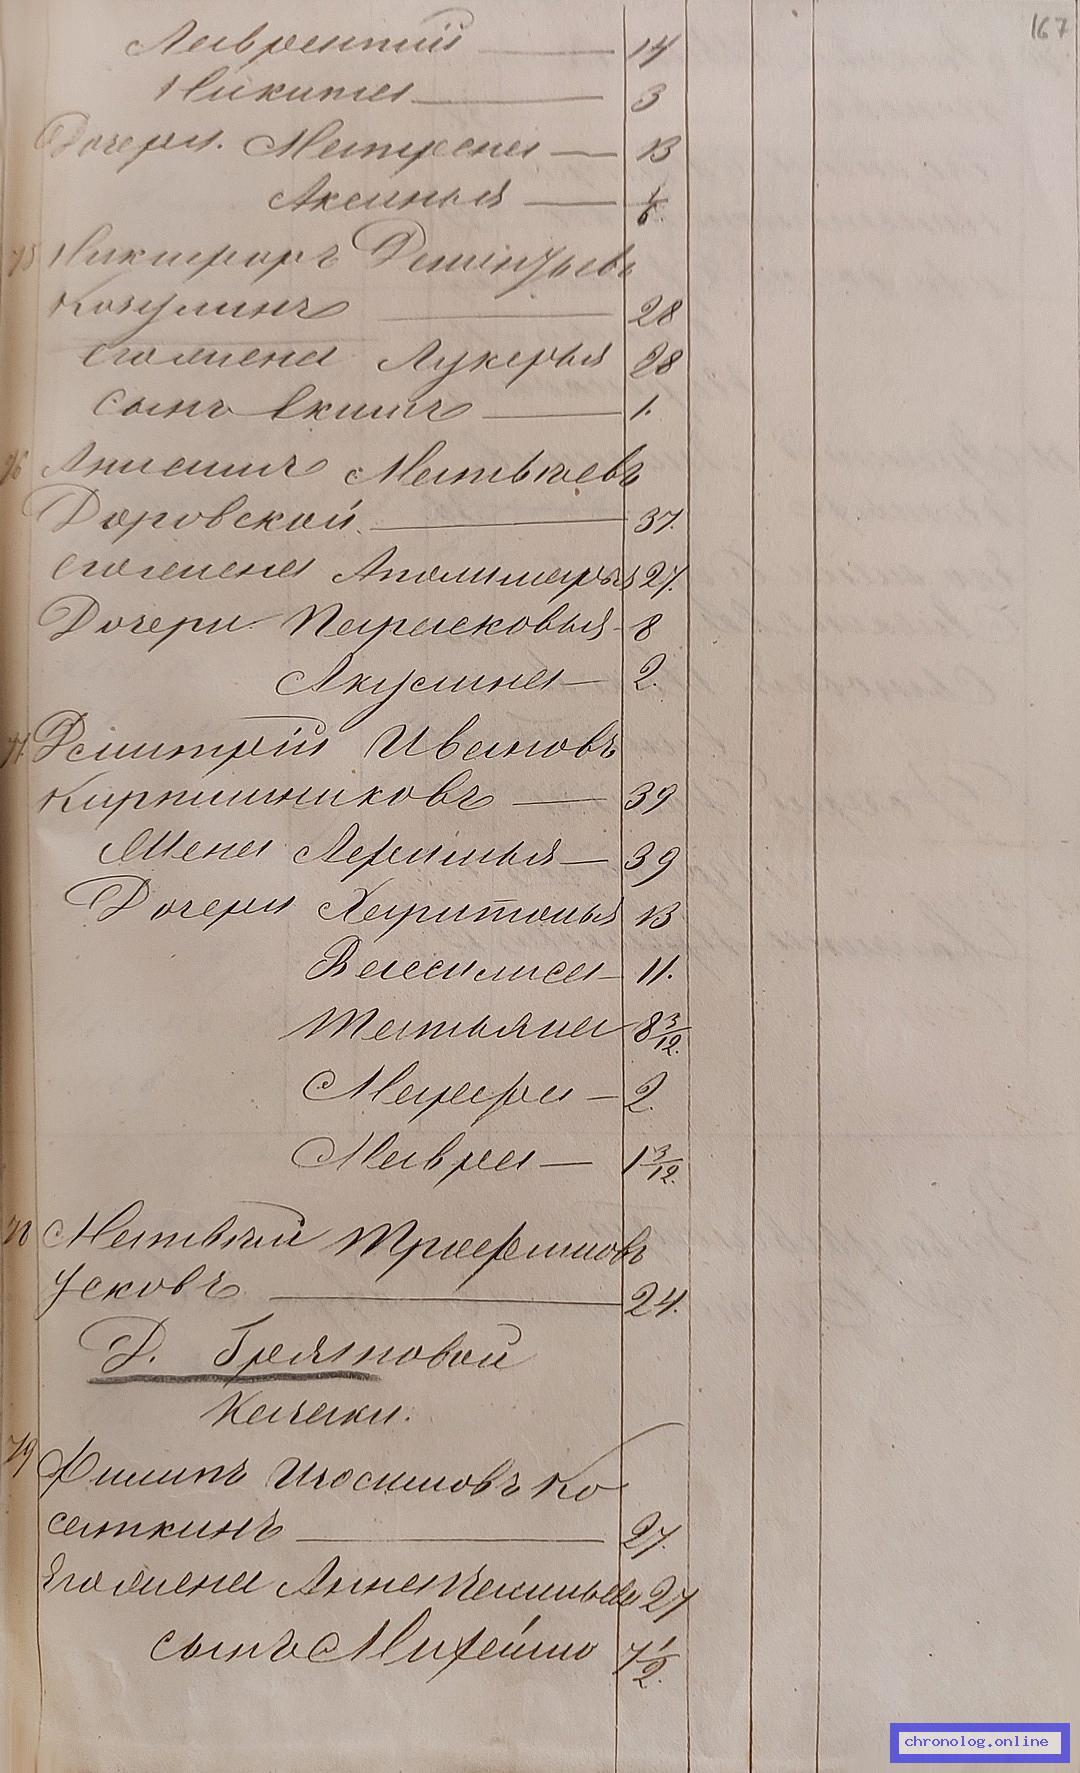 167
Лаврентий 14
Никита 3
Дочери. Матрена 13
Аксинья 1/6
75 Никифоръ Дементьевъ
Кокулинъ 28
его жена Лукерья 28
сынъ Екимъ 1.
76 Анисимъ Матвѣевъ
Доровской 37.
его жена Аполинарья 27.
Дочери Парасковья 8
Акулина 2.
77. Дмитрій Ивановъ
Кирпишниковъ 39
Жена Афимья 39
Дочери Харитонья 13
Василиса 11.
Татьяна 8 3/12.
Марфа 2.
Мавра 1 3/12.
78 Матвѣй Трафимовъ
Усковъ 24.
Д. Грязновой
Качаки.
79 Филипъ Изосимовъ Ко
саткинъ 27.
Его жена Анна 27
сынъ Михайло 7 1/2.
chronolog.online